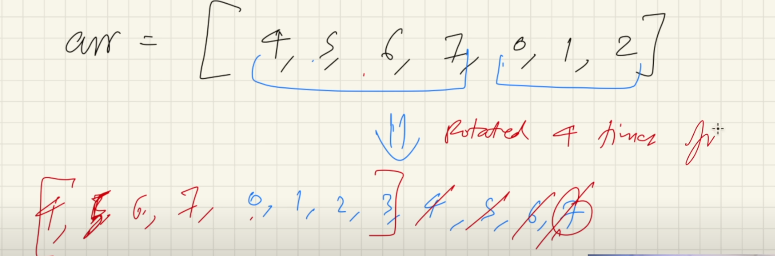 arr = [4, 5, 6, 7, 0, 1, 2]
Rotated 4 times fr
[4, 5, 6, 7, 0, 1, 2, 3] 4, 5, 6, 7